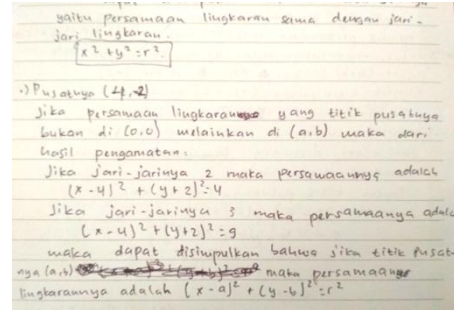 yaitu persamaan lingkaran sama dengan jari-
jari lingkaran.
x² + y² = r².
•) Pusatnya (4,-2)
Jika persamaan lingkaran yang titik pusatnya
bukan di (0,0) melainkan di (a,b) maka dari
hasil pengamatan:
Jika jari-jarinya 2 maka persamaannya adalah
(x-4)² + (y+2)² = 4
Jika jari-jarinya 3 maka persamaanya adalah
(x-4)² + (y+2)² = 9
maka dapat disimpulkan bahwa jika titik pusat-
nya (a,b) maka persamaan
lingkarannya adalah (x-a)² + (y-b)² = r²